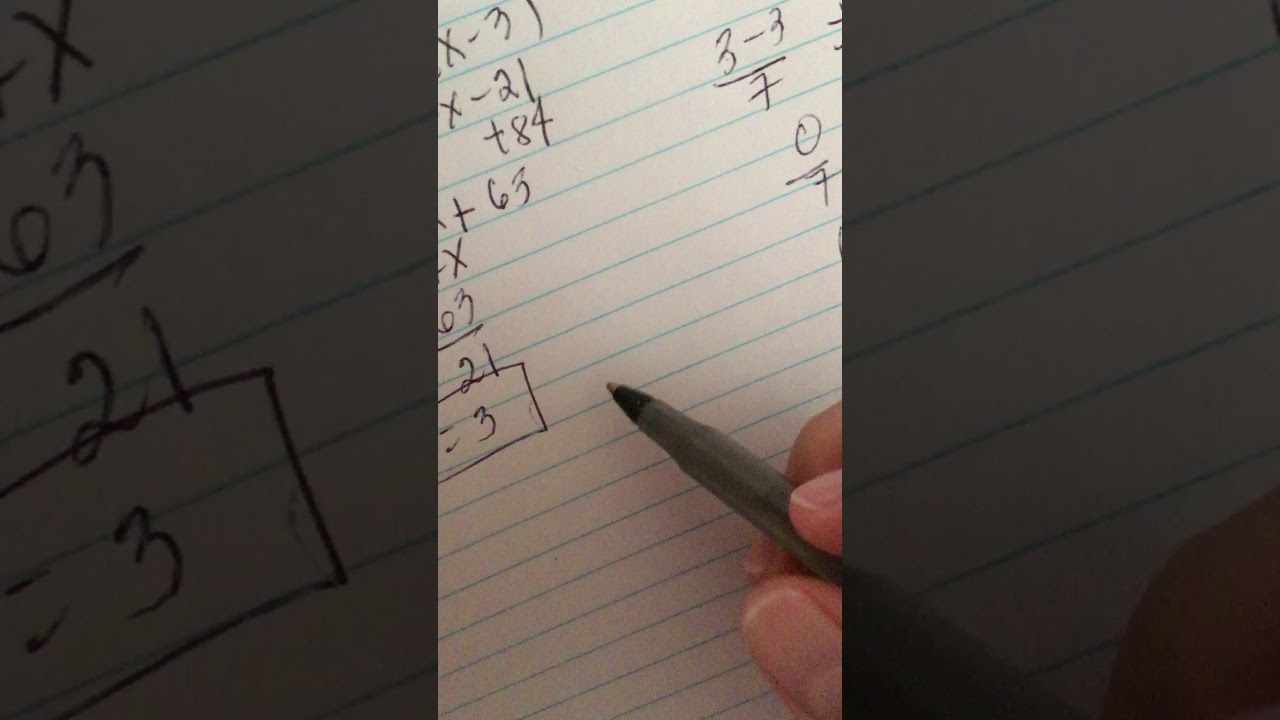 x-3)
x-21
+84
+ 63
+x
63
21
= 3
3-3
7
0
7